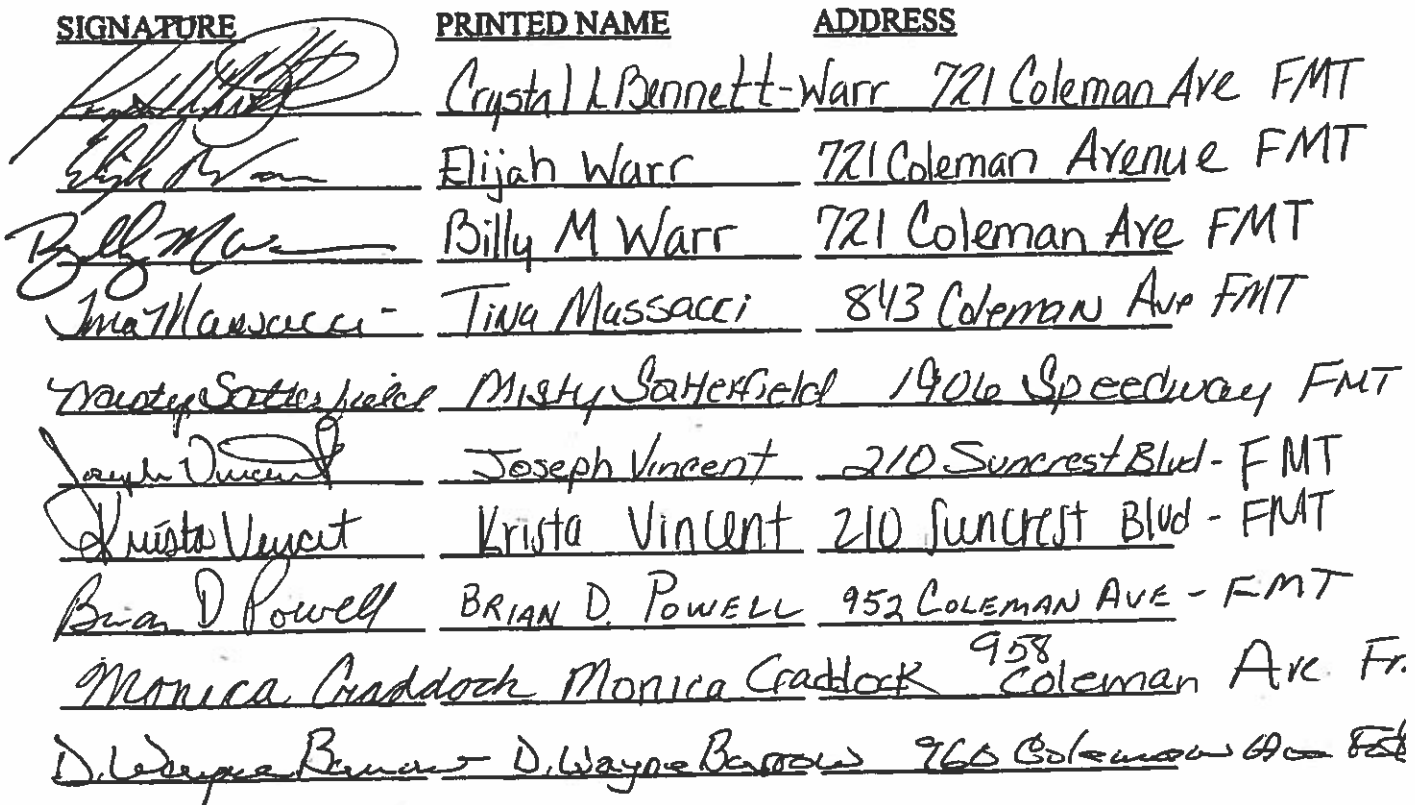 SIGNATURE PRINTED NAME ADDRESS
Crystal L Bennett-Warr 721 Coleman Ave FMT
Elijah Warr 721 Coleman Avenue FMT
Billy M Warr 721 Coleman Ave FMT
Tina Massacci Tina Massacci 843 Coleman Ave FMT
Misty Satterfield Misty Satterfield 1906 Speedway FMT
Joseph Vincent Joseph Vincent 210 Suncrest Blvd - FMT
Krista Vincent Krista Vincent 210 Suncrest Blvd - FMT
Brian D Powell BRIAN D. POWELL 952 COLEMAN AVE - FMT
Monica Craddock Monica Craddock 958 Coleman Ave Fr.
D. Wayne Barrow D. Wayne Barrow 960 Coleman Ave